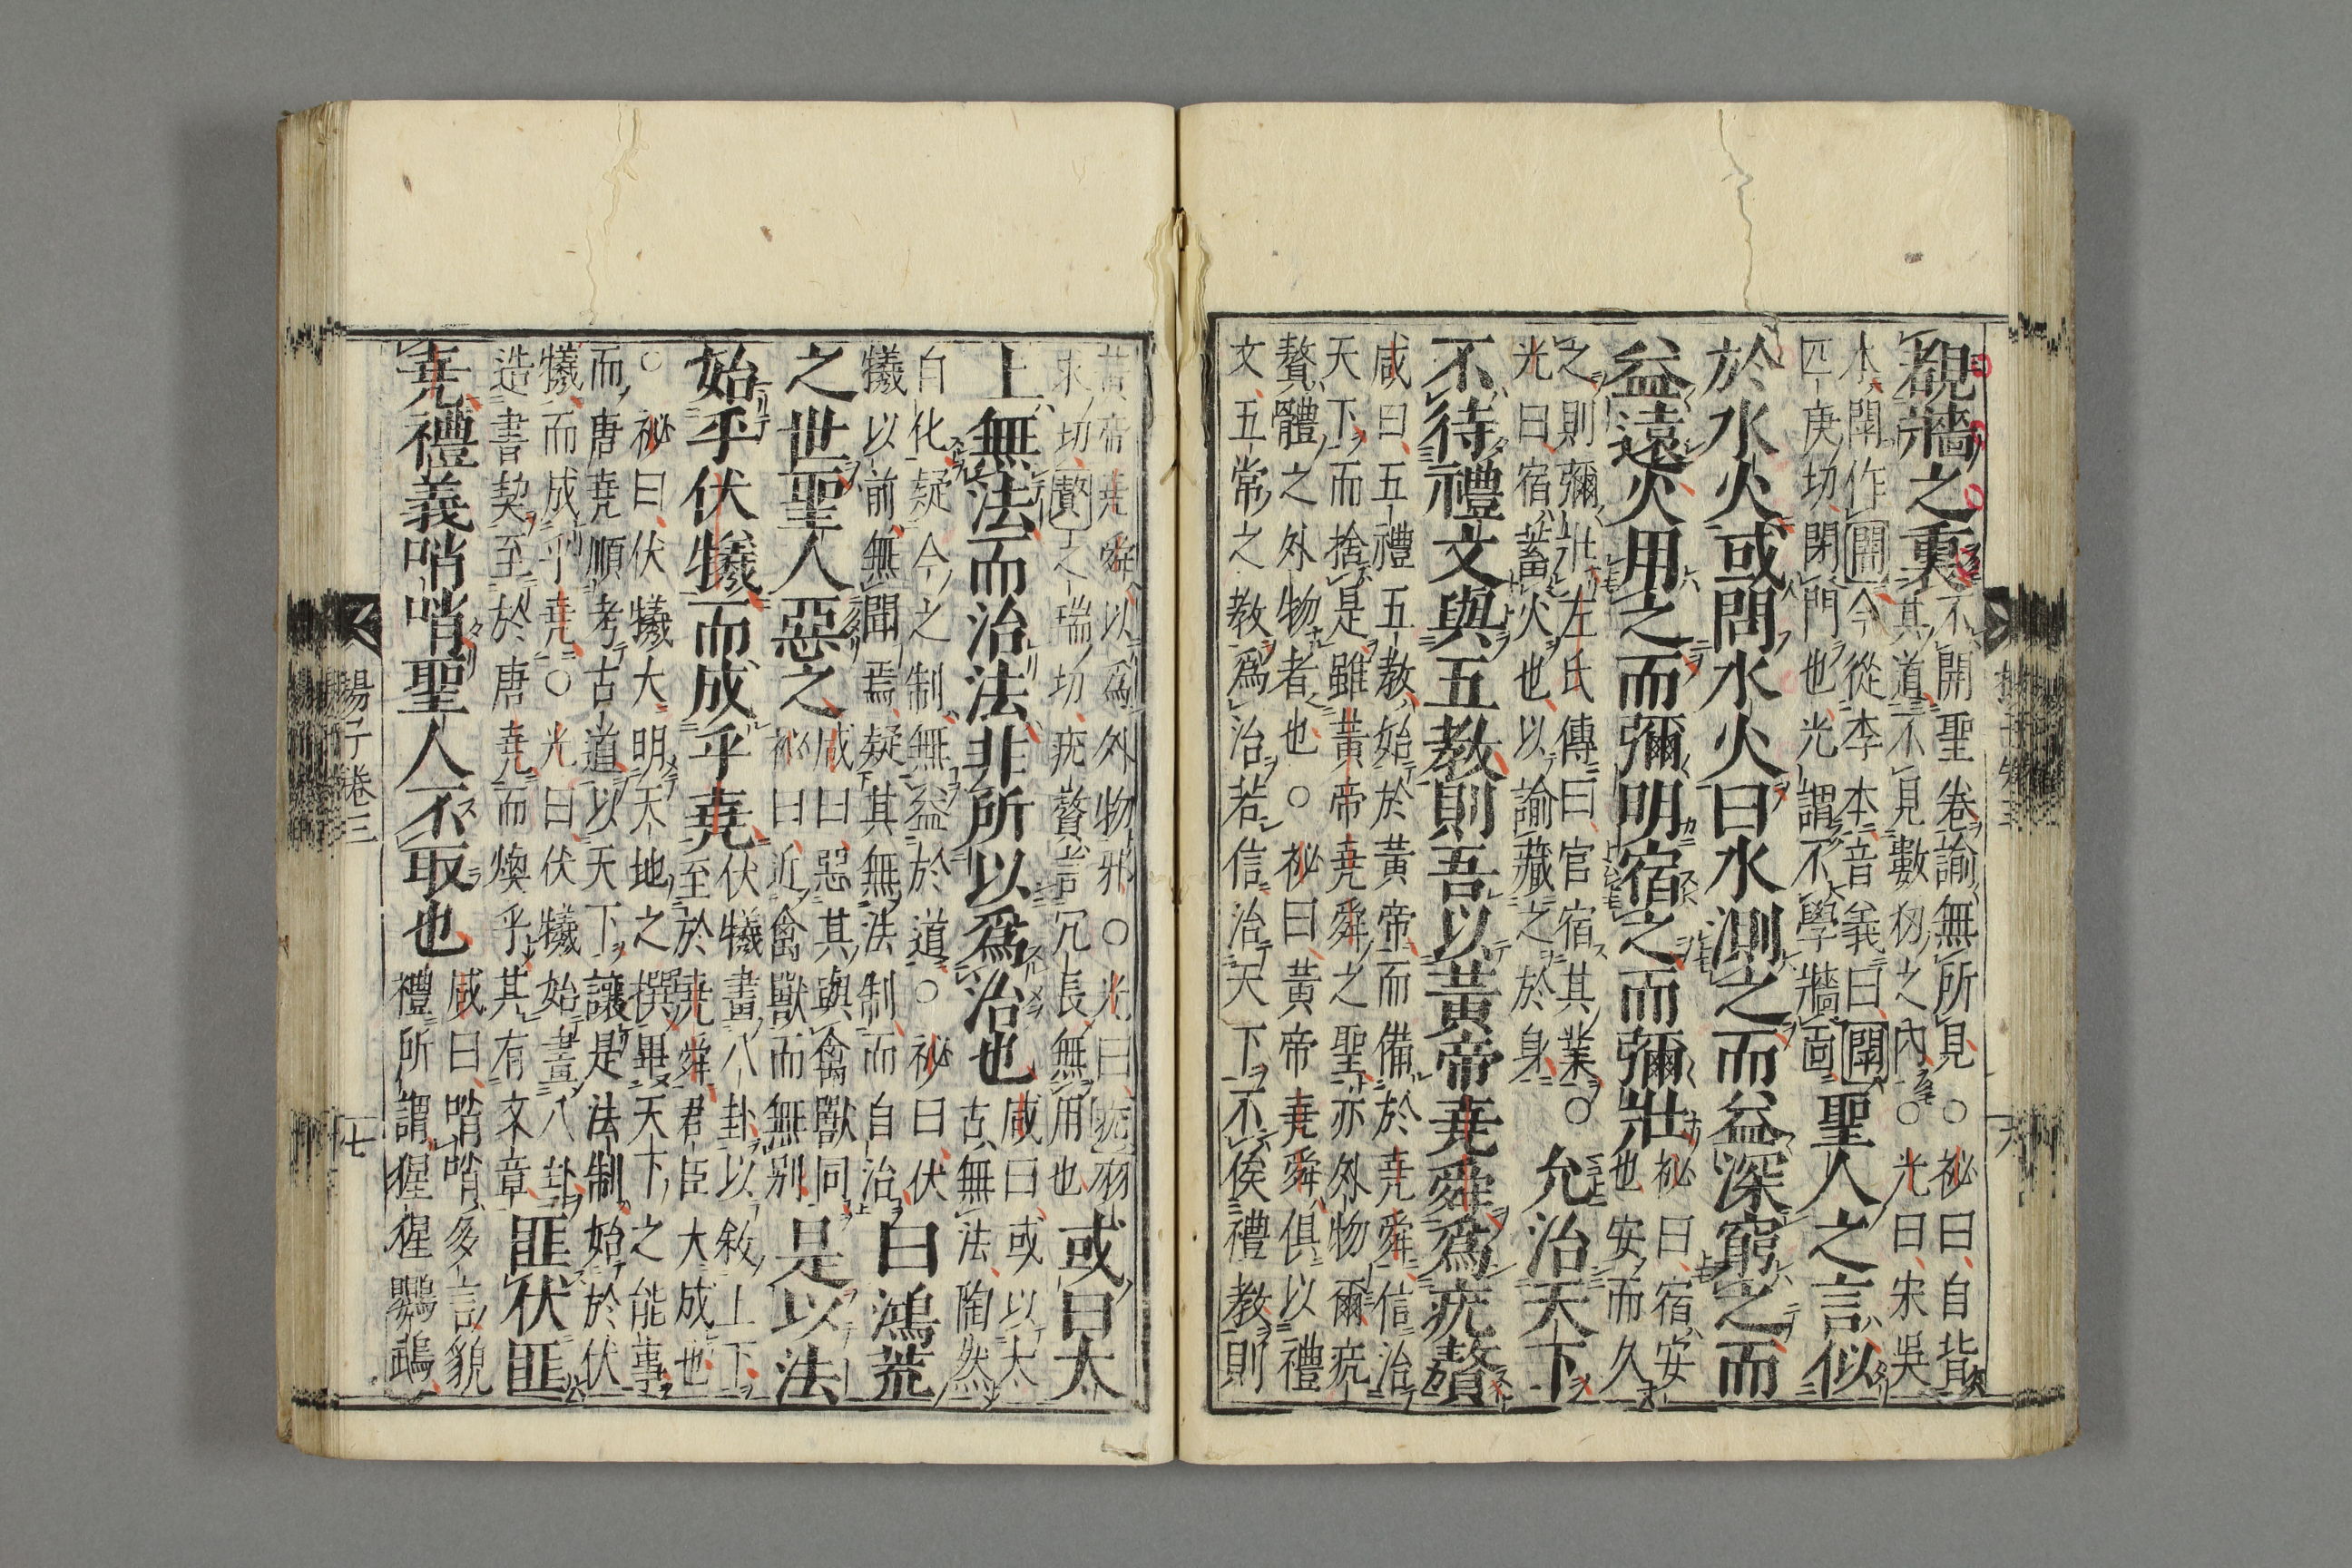 覩牆之裏
不開聖卷諭無所見○祕曰自背
其道不見數仞之內○光曰宋吳
本閛作開今從李本音義曰閛
匹庚切閉門也光謂不學牆面
聖人之言似
於水火或問水火曰水測之而益深窮之而
益遠火用之而彌明宿之而彌壯
祕曰宿安
也安而久
之則彌壯左氏傳曰官宿其業○
光曰宿蓄火也以諭藏之於身
允治天下
不待禮文與五教則吾以黃帝堯舜爲疣贅
咸曰五禮五教始於黃帝而備於堯舜信治
天下而捨是雖黃帝堯舜之聖亦外物爾疣
贅體之外物者也○祕曰黃帝堯舜俱以禮
文五常之教爲治若信治天下不俟禮教則
黃帝堯舜以爲外物邪○光曰疣羽
求切贅之瑞切疣贅言冗長無用也
或曰太
上無法而治法非所以爲治也
咸曰或以太
古無法陶然
自化疑今之制無益於道○祕曰伏
犧以前無聞焉疑其無法制而自治
曰鴻荒
之世聖人惡之
咸曰惡其與禽獸同
祕曰近禽獸而無別
是以法
始乎伏犧而成乎堯
伏犧畫八卦以敘上下
至於堯舜君臣大成也
○祕曰伏犧大明天地之撰畢天下之能事
而唐堯順考古道以天下讓是法制始於伏
犧而成乎堯○光曰伏犧始畫八卦
造書契至於唐堯而煥乎其有文章
匪伏匪
堯禮義哨哨聖人不取也
咸曰哨哨多言貌
禮所謂猩猩鸚鵡
揚子卷三
七